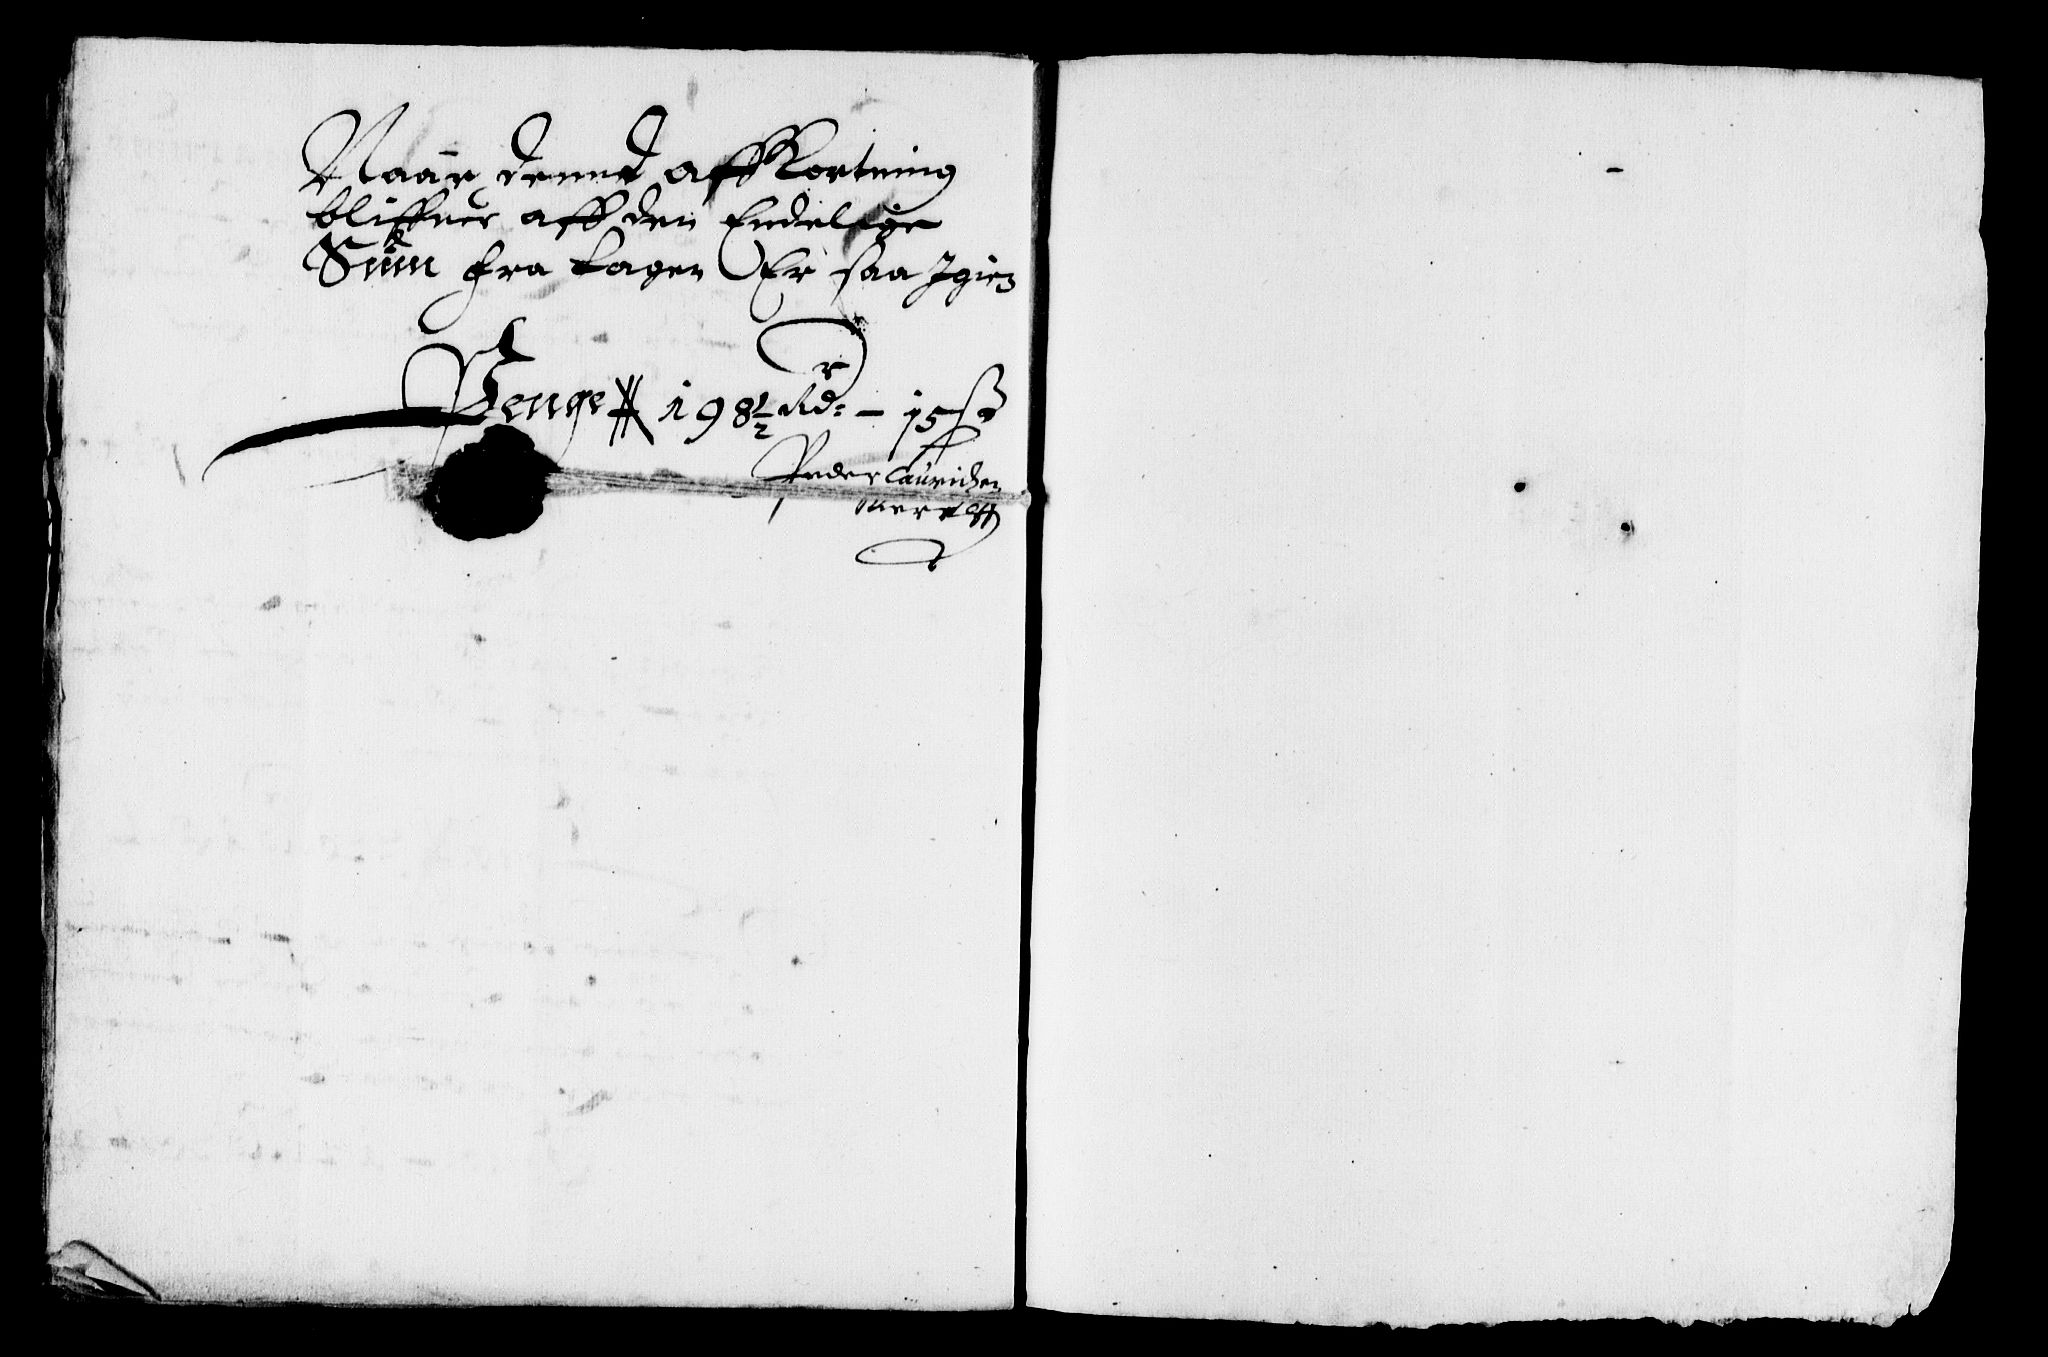 Naar denne affkortning
bliffuer aff den Endelige
Sum fra tagen Er saa Igien
Penge 198½ Rdr - 15 ß
Peder Lauridzen